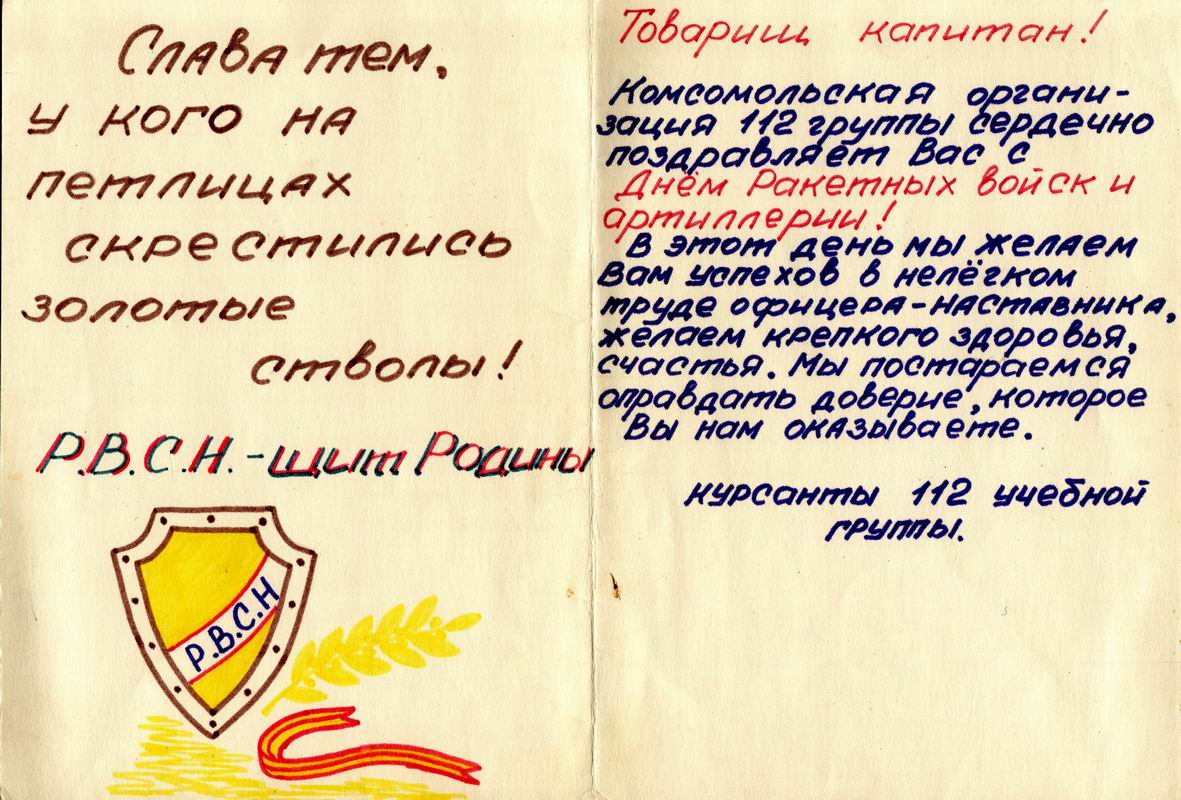 Слава тем,
у кого на
петлицах
скрестились
золотые
стволы!
Р.В.С.Н. - щит Родины
Р.В.С.Н
Товарищ капитан!
Комсомольская органи-
зация 112 группы сердечно
поздравляет Вас с
Днём Ракетных войск и
артиллерии!
В этот день мы желаем
Вам успехов в нелёгком
труде офицера-наставника,
желаем крепкого здоровья,
счастья. Мы постараемся
оправдать доверие, которое
Вы нам оказываете.
курсанты 112 учебной
группы.